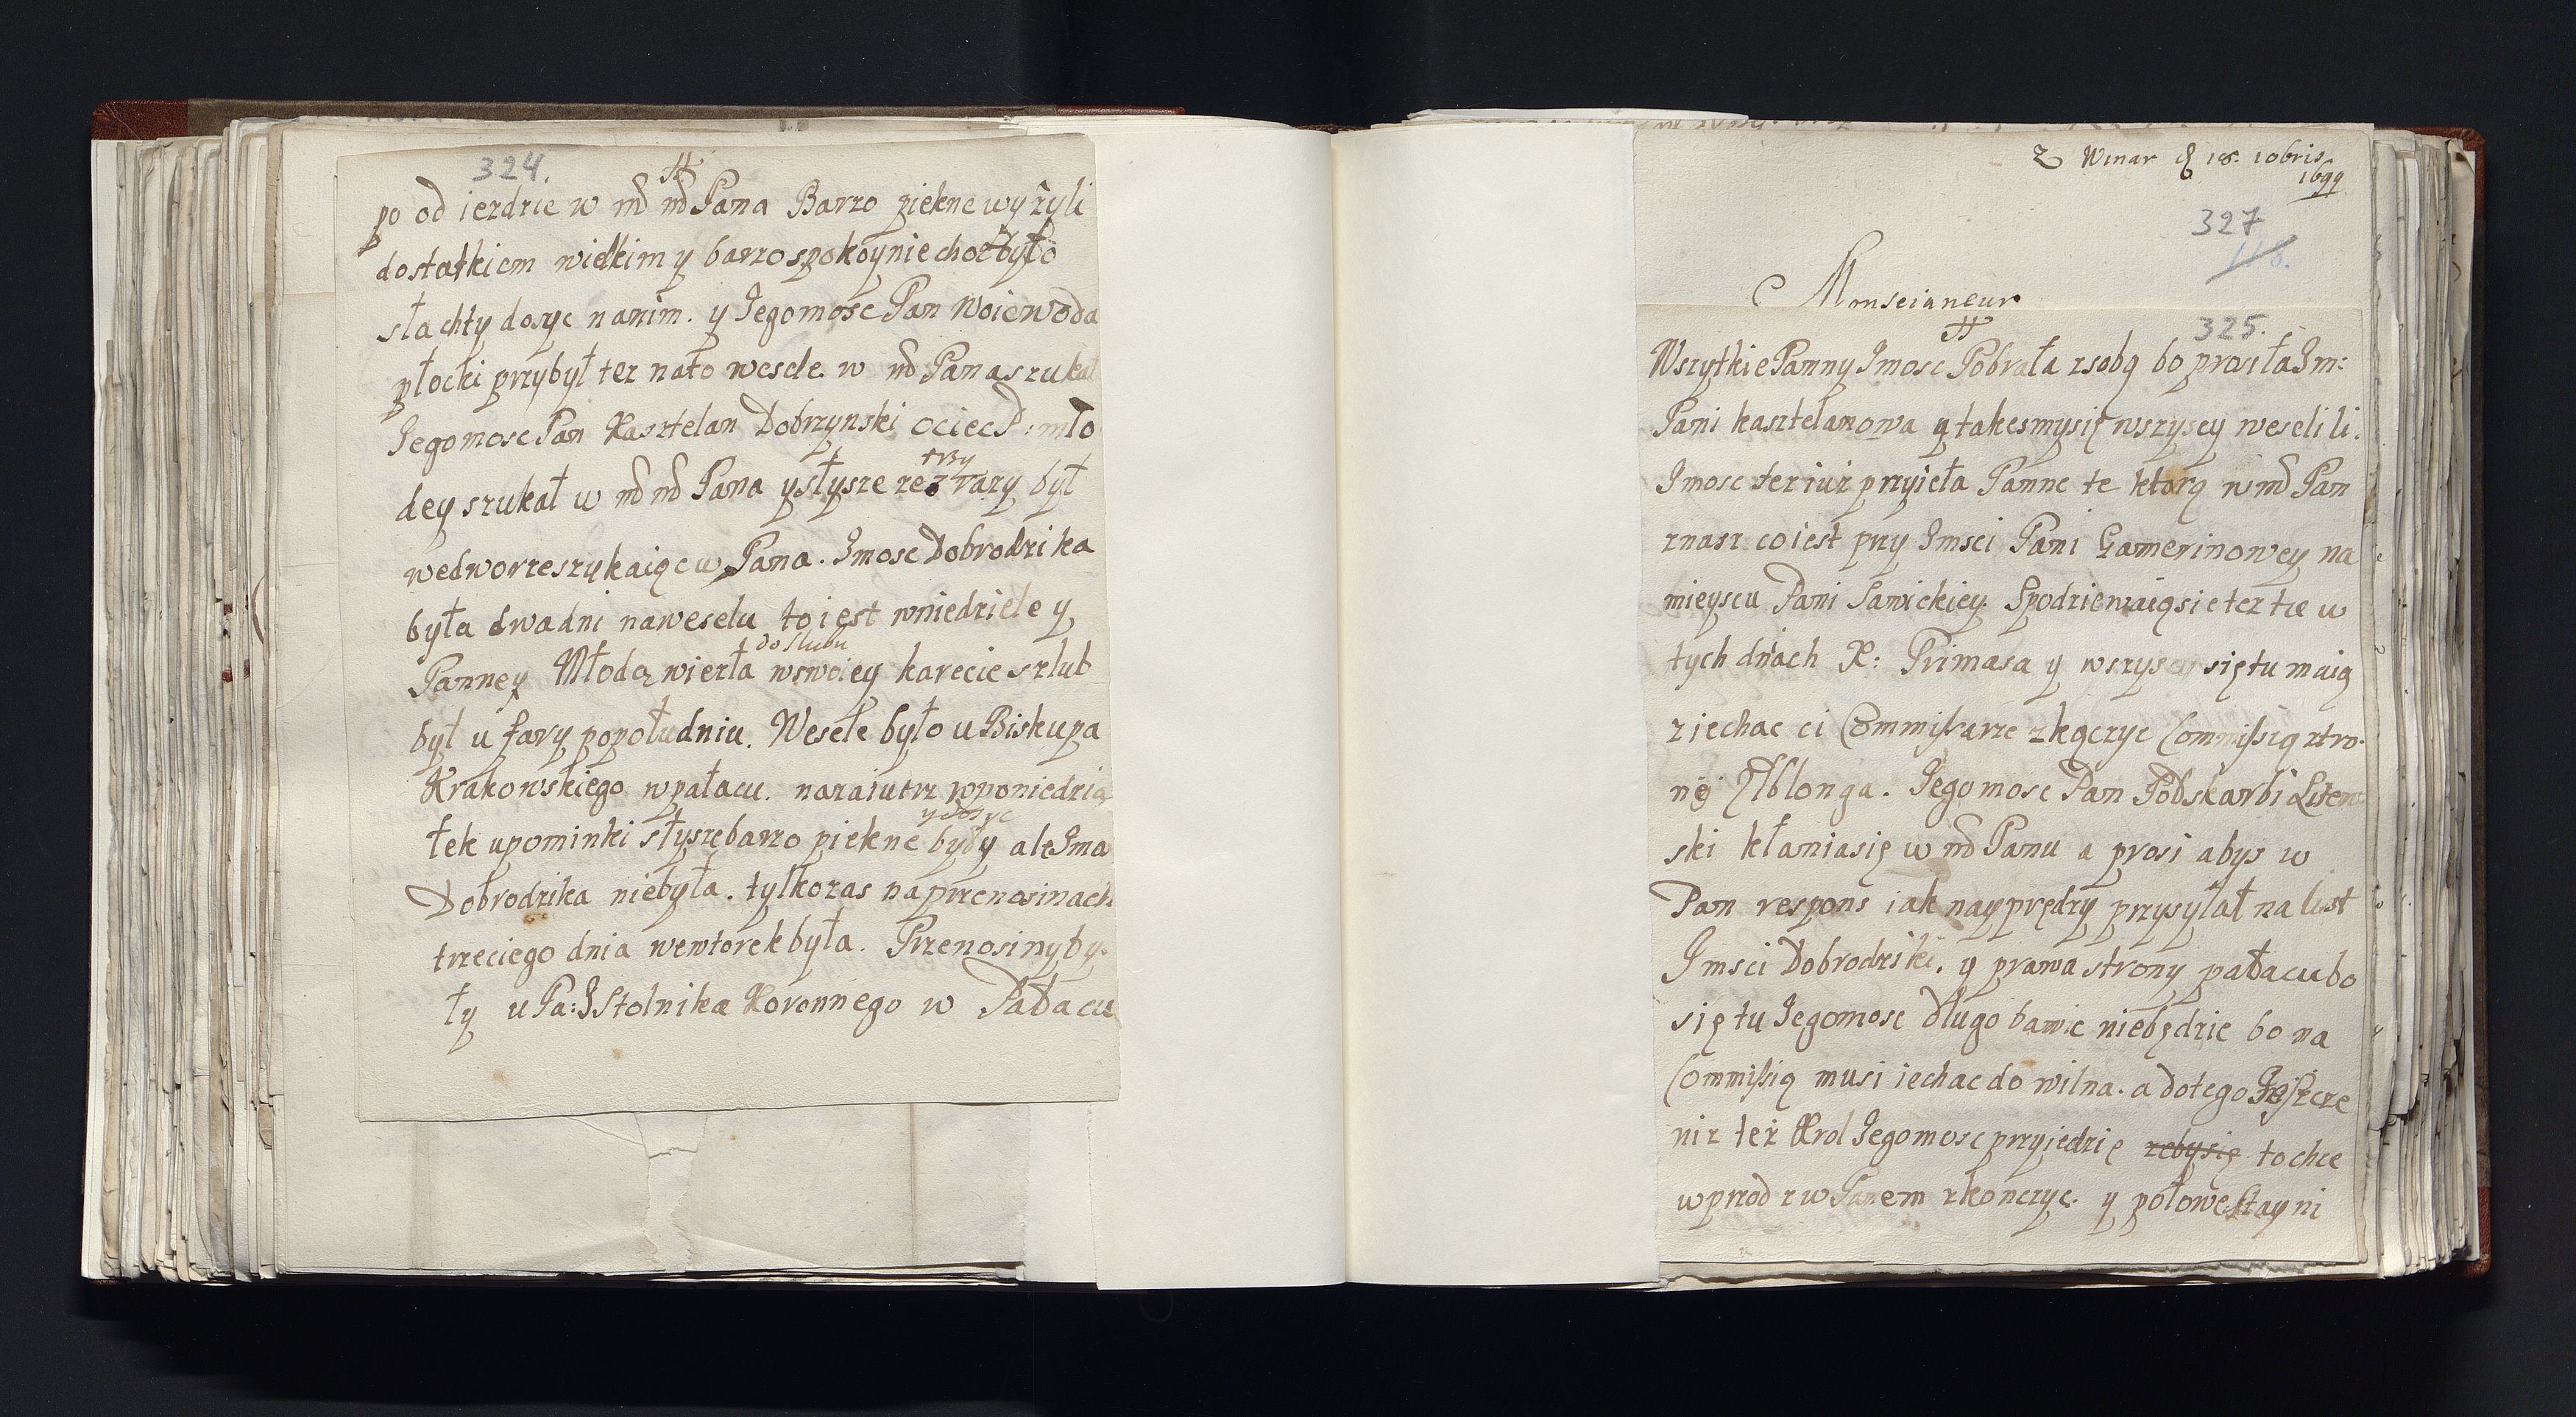 324.
po od ierdzie w md md Pana Barzo piekne wyzyli
dostatkiem wielkim y barzo spokoynie choc było
słachty dosyc nanim. y Jegomosc Pan Woiewoda
płocki przybył tez nato wesele w md Pana szukał
Jegomosc Pan Kasztelan Dobrzynski ociec P: mło
dey szukał w md md Pana y słysze ze trzy razy był
wedworze szukaiąc w Pana. Jmosc Dobrodzika
była dwadni naweselu to iest wniedziele y
do slubu
Panney Młodą wiezła wswoiey karecie szlub
był u fary popołudniu. Wesele było u Biskupa
Krakowskiego wpałacu. nazaiutrz wponiedzia
y dosyc
łek upominki słyszę barzo piekne były ale Jma
Dobrodzika niebyła. tylkozas na przenosinach
trzeciego dnia wewtorek była. Przenosiny by
ły u Pa: J Stolnika Koronnego w Pałacu
Z Winar d 18. 10bris
1699
327
118.
Monseigneur
325.
Wszytkie Panny Jmosc Pobrała zsobą bo prosiła Jm:
Pani kasztelanowa y takesmysię wszyscy weselili.
Jmosc tez iuz przyieła Panne te ktorą w md Pan
znasz co iest przy Jmsci Pani Gamerinowey na
mieyscu Pani Sawickiey. Spodziewaiąsie tez tu w
tych dniach X: Primasa y wszyscy się tu maią
ziechac ci Commissarze zkączyc Commissią ztro
nę Elblonga. Jegomosc Pan Podskarbi Litew
ski kłaniasię w md Panu a prosi abys w
Pan respons iak nayprędzy przysyłał na list
Jmsci Dobrodziki. y prawa strony pałacu bo
się tu Jegomosc długo bawic niebędzie bo na
Commissią musi iechac do wilna. a dotego Jeszcze
niz też Krol Jegomosc przyiedzię zebysię to chce
wprzod z w Panem zkonczyc. y połowe stayni